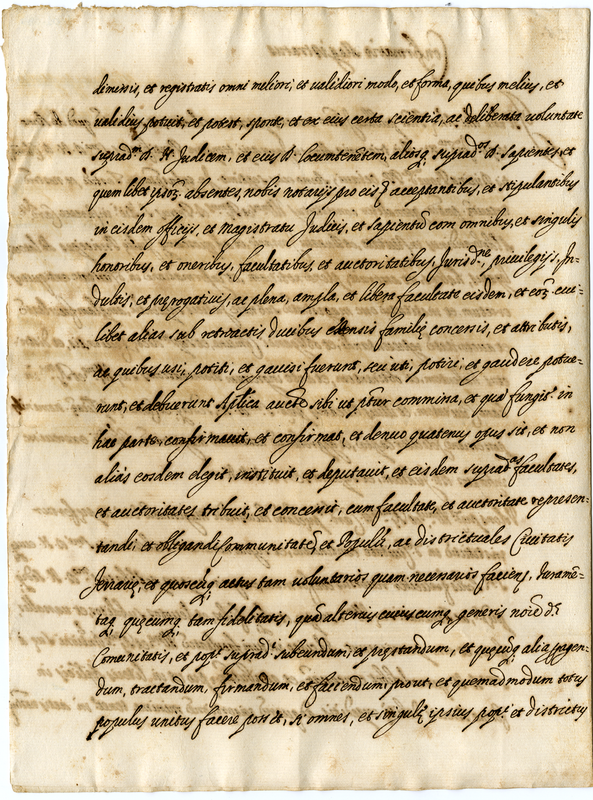 dimissis, et registratis omni meliori, et validiori modo, et forma, quibus melius, et
validius potuit, et potest, sponte, et ex eius certa scientia, ac deliberata voluntate
suprad.m D. Judicem, et eius D. locumtenẽtem, aliosq. suprad.os D. sapientes, et
quemlibet ipsoꝝ absentes, nobis notarijs pro eis acceptantibus, et stipulantibus
in eisdem officijs, et Magistratu Judicis, et sapientũ com omnibus, et singulis
honoribus, et oneribus, facultatibus, et auctoritatibus, Jurisd.ne, privilegijs, In-
dultis, et prerogativis, ac plena, ampla, et libera facultate eisdem, et eoꝝ cui-
libet alias sub retroactis ducibus estensis familię concessis, et attributis,
ac quibus usi, potiti, et gavisi fuerunt, seu uti, potiri, et gaudere potue-
runt, et debuerunt Aplica auctẽ sibi ut p̃tur commissa, et qua fungit.r in
hac parte, confirmavit, et confirmat, et denuo quatenus opus sit, et non
alias eosdem elegit, instituit, et deputavit, et eisdem suprad.as facultates,
et auctoritates tribuit, et concessit, cum facultate, et auctoritate represen-
tandi, et obligandi Communitatẽ, et Populũ, ac districtuales Civitatis
Ferrarię, et quoscũq. actus tam voluntarios quam necessarios faciend., Juramẽ-
taq. quęcumq. tam fidelitatis, quã alterius cuiuscumq. generis noĩe d.ę
Comunitatis, et pop.li suprad.i subeundum, et prestandum, et quęcũq. alia pagen-
dum, tractandum, firmandum, et faciendum, prout, et quemadmodum totus
populus unitus facere posset, si omnes, et singuli ipsius pop.li et districtus